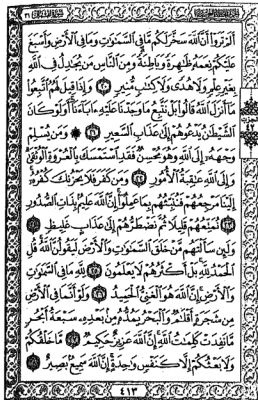 أَلَمْ تَرَوْا أَنَّ ٱللَّهَ سَخَّرَ لَكُم مَّا فِي ٱلسَّمَٰوَٰتِ وَمَا فِي ٱلْأَرْضِ وَأَسْبَغَ
عَلَيْكُمْ نِعَمَهُۥ ظَٰهِرَةً وَبَاطِنَةً وَمِنَ ٱلنَّاسِ مَن يُجَٰدِلُ فِي ٱللَّهِ
بِغَيْرِ عِلْمٍ وَلَا هُدًى وَلَا كِتَٰبٍ مُّنِيرٍ ۝٢٠ وَإِذَا قِيلَ لَهُمُ ٱتَّبِعُوا۟
مَآ أَنزَلَ ٱللَّهُ قَالُوا۟ بَلْ نَتَّبِعُ مَا وَجَدْنَا عَلَيْهِ ءَابَآءَنَآ أَوَلَوْ كَانَ
ٱلشَّيْطَٰنُ يَدْعُوهُمْ إِلَىٰ عَذَابِ ٱلسَّعِيرِ ۝٢١ ۞ وَمَن يُسْلِمْ
وَجْهَهُۥٓ إِلَى ٱللَّهِ وَهُوَ مُحْسِنٌ فَقَدِ ٱسْتَمْسَكَ بِٱلْعُرْوَةِ ٱلْوُثْقَىٰ
وَإِلَى ٱللَّهِ عَٰقِبَةُ ٱلْأُمُورِ ۝٢٢ وَمَن كَفَرَ فَلَا يَحْزُنكَ كُفْرُهُۥٓ
إِلَيْنَا مَرْجِعُهُمْ فَنُنَبِّئُهُم بِمَا عَمِلُوٓا۟ إِنَّ ٱللَّهَ عَلِيمٌۢ بِذَاتِ ٱلصُّدُورِ
۝٢٣ نُمَتِّعُهُمْ قَلِيلًا ثُمَّ نَضْطَرُّهُمْ إِلَىٰ عَذَابٍ غَلِيظٍ ۝٢٤
وَلَئِن سَأَلْتَهُم مَّنْ خَلَقَ ٱلسَّمَٰوَٰتِ وَٱلْأَرْضَ لَيَقُولُنَّ ٱللَّهُ قُلِ
ٱلْحَمْدُ لِلَّهِ بَلْ أَكْثَرُهُمْ لَا يَعْلَمُونَ ۝٢٥ لِلَّهِ مَا فِي ٱلسَّمَٰوَٰتِ
وَٱلْأَرْضِ إِنَّ ٱللَّهَ هُوَ ٱلْغَنِيُّ ٱلْحَمِيدُ ۝٢٦ وَلَوْ أَنَّمَا فِي ٱلْأَرْضِ
مِن شَجَرَةٍ أَقْلَٰمٌ وَٱلْبَحْرُ يَمُدُّهُۥ مِنۢ بَعْدِهِۦ سَبْعَةُ أَبْحُرٍ
مَّا نَفِدَتْ كَلِمَٰتُ ٱللَّهِ إِنَّ ٱللَّهَ عَزِيزٌ حَكِيمٌ ۝٢٧ مَّا خَلْقُكُمْ
وَلَا بَعْثُكُمْ إِلَّا كَنَفْسٍ وَٰحِدَةٍ إِنَّ ٱللَّهَ سَمِيعٌۢ بَصِيرٌ ۝٢٨
٤١٣